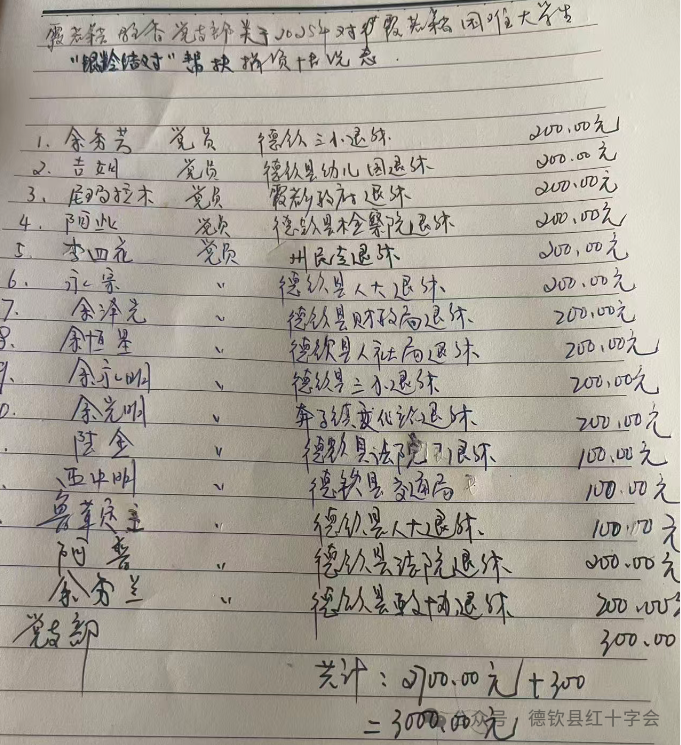 霞若籍 党支部关于2025年对霞若籍困难大学生
"银龄结对"帮扶捐资 情况
1. 余秀芳 党员 德钦三小退休 200.00元
2. 吉姆 党员 德钦县幼儿园退休 200.00元
3. 尼玛拉木 党员 霞若乡政府退休 200.00元
4. 阿此 党员 德钦县检察院退休 200.00元
5 李四花 党员 州民宗退休 200.00元
6. 永宗 〃 德钦县人大退休 200.00元
7. 余泽光 〃 德钦县财政局退休 200.00元
8. 余恒星 〃 德钦县人社局退休 200.00元
9. 余永明 〃 德钦县三小退休 200.00元
0. 余光明 〃 奔子栏 退休 200.00元
陆金 〃 德钦县法院 退休 100.00元
中明 〃 德钦县交通局 100.00元
鲁茸定主 〃 德钦县人大退休 100.00元
阿普 〃 德钦县法院退休 200.00元
余秀兰 〃 德钦县政协退休 200.00
党支部 300.00
共计:2700.00元+300
=3000.00元
公众号 德钦县红十字会